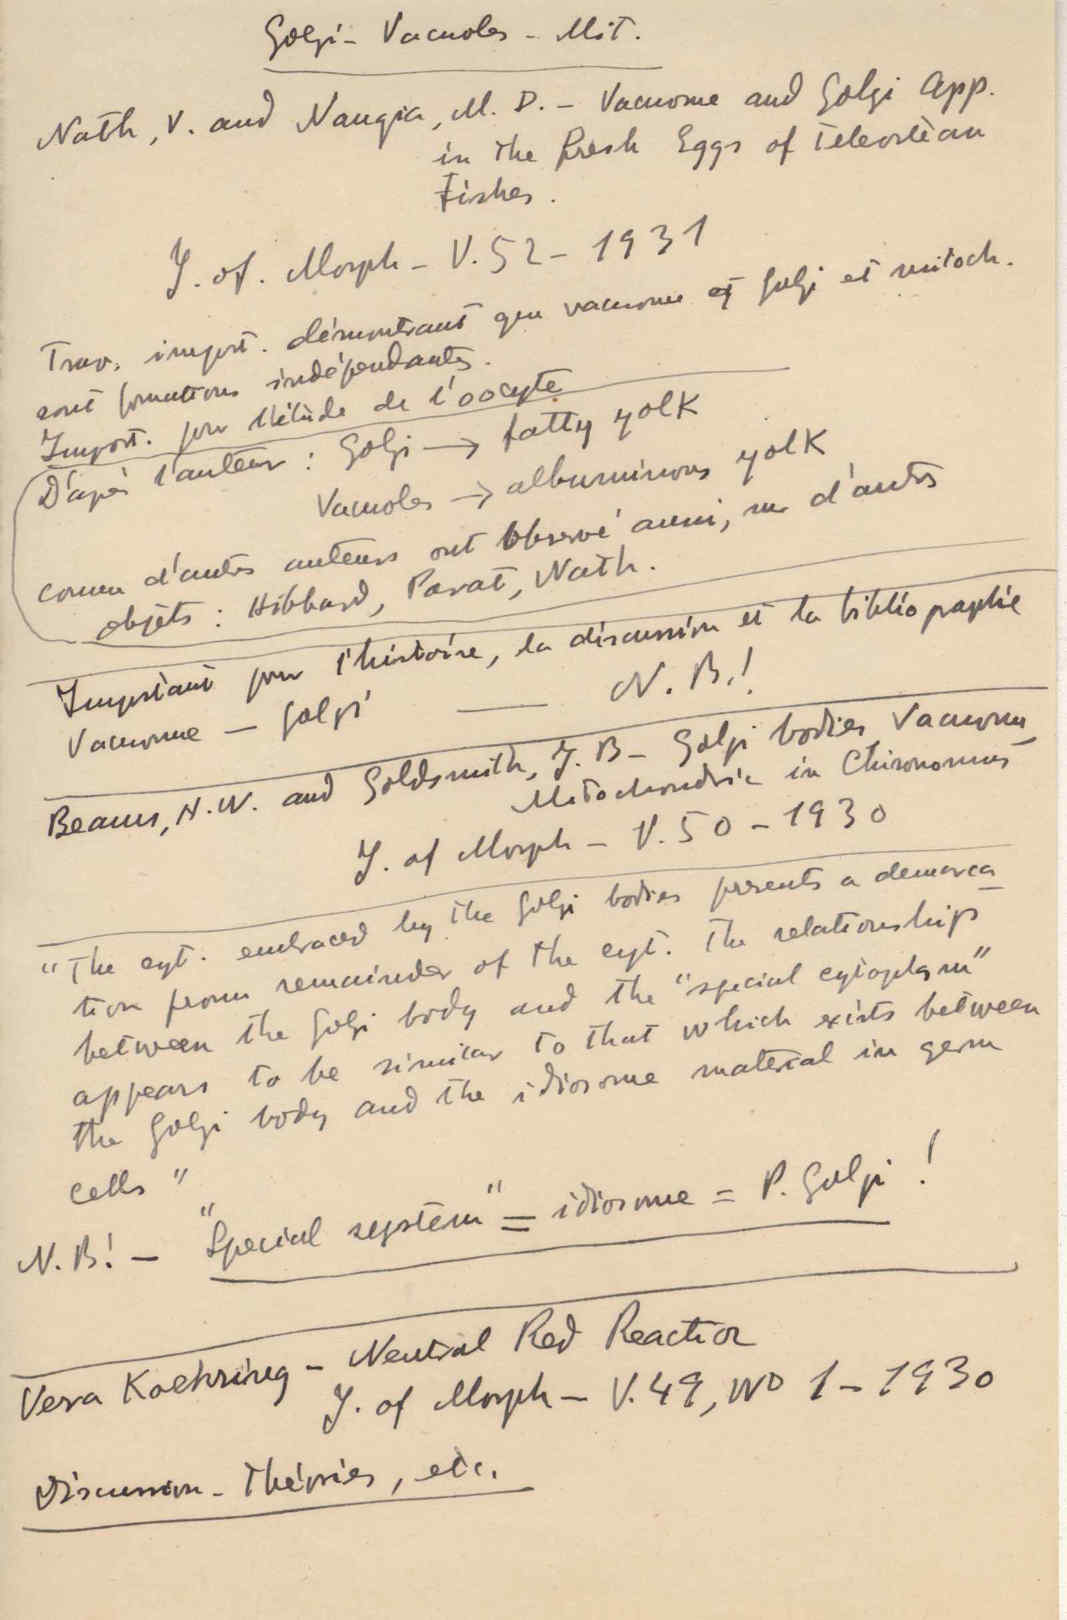 Golgi - Vacuoles - Mit.
Nath, V. and Nangia, M. D. - Vacuome and Golgi App.
in the fresh Eggs of Teleostean
Fishes.
J. of. Morph - V. 52 - 1931
Trav. import. démontrant que vacuome et Golgi et mitoch.
sont formations indépendantes.
Import. pour l'étude de l'oocyte
D'après l'auteur : Golgi → fatty yolk
Vacuoles → albuminous yolk
comme d'autres auteurs ont observé aussi, sur d'autres
objets : Hibbard, Parat, Nath.
Important pour l'histoire, la discussion et la bibliographie
Vacuome - Golgi — N. B.!
Beams, H. W. and Goldsmith, J. B - Golgi bodies, Vacuome,
Mitochondria in Chironomus
J. of Morph - V. 50 - 1930
"The cyt. embraced by the Golgi bodies presents a demarca-
tion from remainder of the cyt. The relationship
between the Golgi body and the "special cytoplasm"
appears to be similar to that which exists between
the Golgi body and the idiosome material in germ
cells"
N. B! - "Special system" = idiosome = P. Golgi !
Vera Koehring - Neutral Red Reaction
J. of Morph - V. 49, No 1 - 1930
Discussion - Théories, etc.